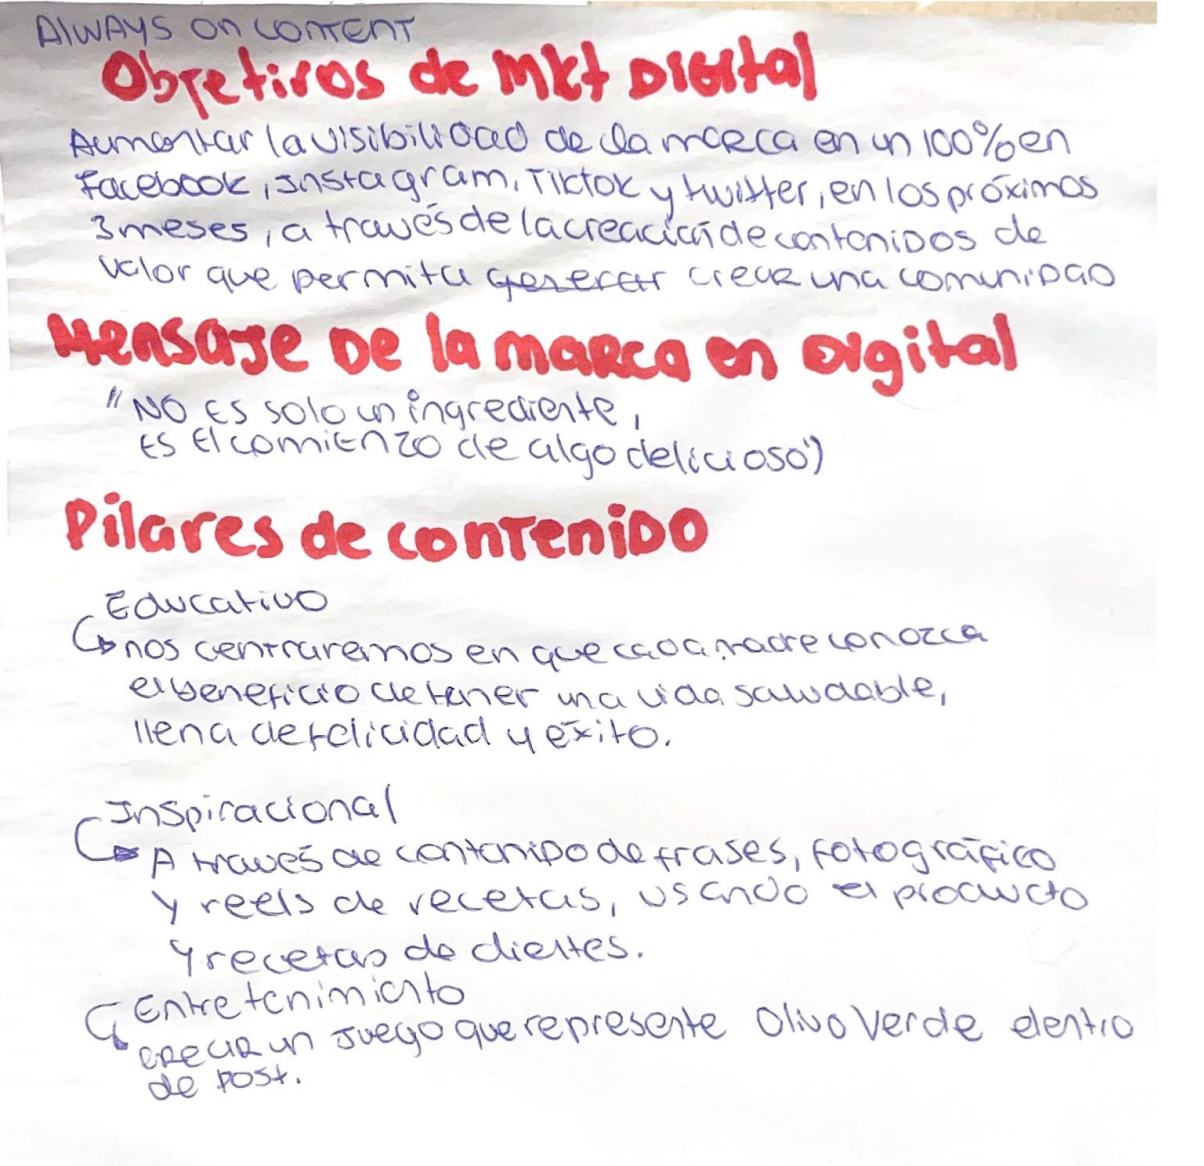 Always on content
Objetivos de Mkt Digital
Aumentar la visibilidad de la marca en un 100% en
Facebook, Instagram, Tiktok y twitter, en los próximos
3 meses, a través de la creación de contenidos de
valor que permita generar crear una comunidad
Mensaje De la marca en Digital
"No es solo un ingrediente,
es el comienzo de algo delicioso"
Pilares de contenido
Educativo
nos centraremos en que cada madre conozca
el beneficio de tener una vida saludable,
llena de felicidad y éxito.
Inspiracional
A través de contenido de frases, fotográfico
y reels de recetas, usando el producto
y recetas de clientes.
Entretenimiento
crear un juego que represente Olivo Verde dentro
de post.